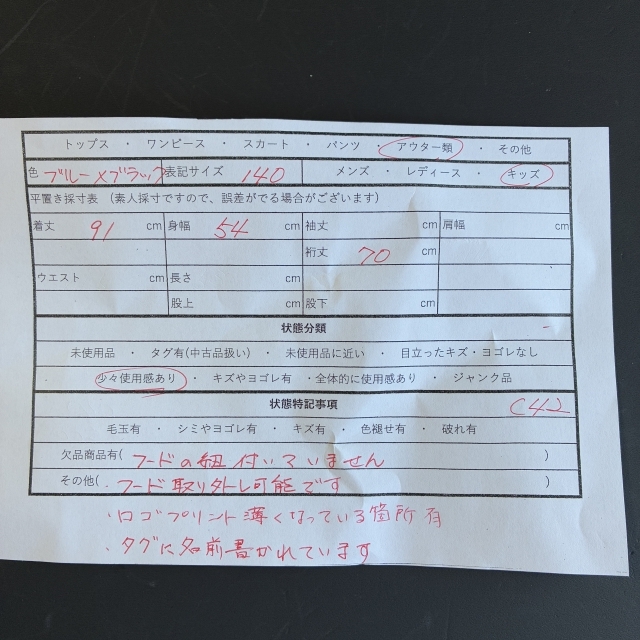 トップス ・ ワンピース ・ スカート ・ パンツ ・ アウター類 ・ その他
色 ブルー×ブラック 表記サイズ 140 メンズ ・ レディース ・ キッズ
平置き採寸表 （素人採寸ですので、誤差がでる場合がございます）
着丈 91 cm 身幅 54 cm 袖丈 cm 肩幅 cm
裄丈 70 cm
ウエスト cm 長さ cm
股上 cm 股下 cm
状態分類
未使用品 ・ タグ有(中古品扱い) ・ 未使用品に近い ・ 目立ったキズ・ヨゴレなし
少々使用感あり ・ キズやヨゴレ有 ・全体的に使用感あり ・ ジャンク品
状態特記事項 C42
毛玉有 ・ シミやヨゴレ有 ・ キズ有 ・ 色褪せ有 ・ 破れ有
欠品商品有( フードの紐付いていません )
その他( ・フード取り外し可能です )
・ロゴプリント薄くなっている箇所有
・タグに名前書かれています